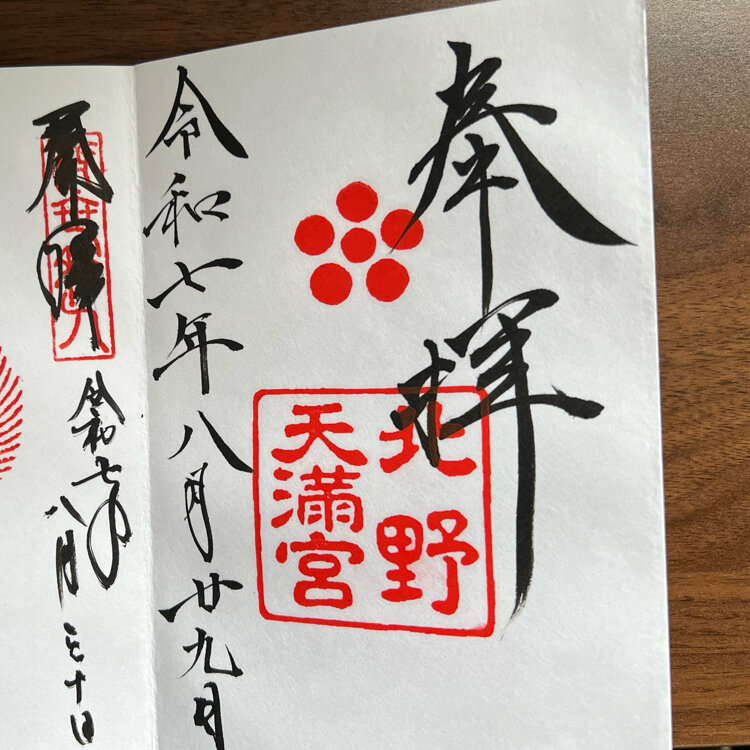 奉拝
北野
天満宮
令和七年八月廿九日
奉拝
令和七年八月三十日